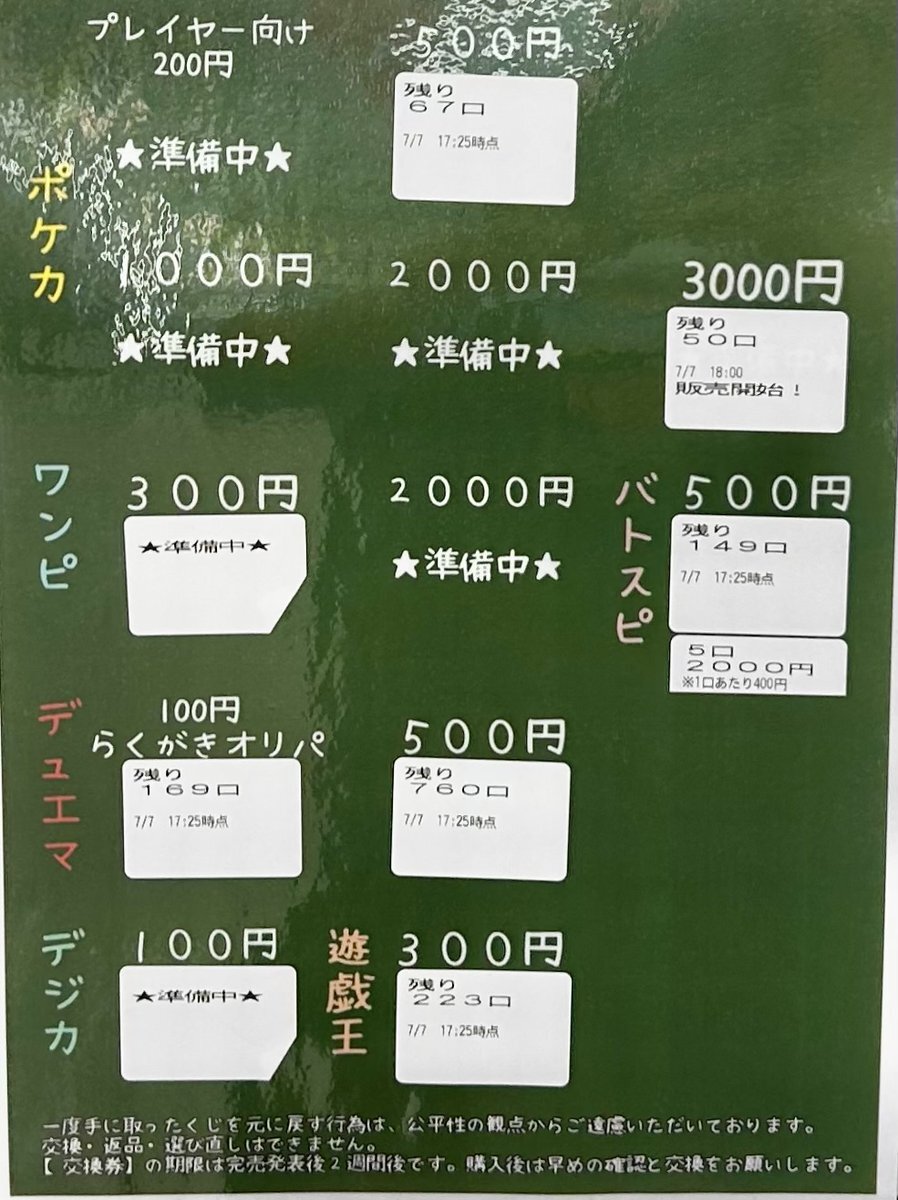 プレイヤー向け
200円
★準備中★
５００円
残り
６７口
7/7 17:25時点
ポケカ
１０００円
★準備中★
２０００円
★準備中★
3000円
残り
５０口
7/7 18:00
販売開始！
ワンピ
３００円
★準備中★
２０００円
★準備中★
バトスピ
５００円
残り
１４９口
7/7 17:25時点
５口
２０００円
※1口あたり400円
デュエマ
100円
らくがきオリパ
残り
１６９口
7/7 17:25時点
５００円
残り
７６０口
7/7 17:25時点
デジカ
１００円
★準備中★
遊戯王
３００円
残り
２２３口
7/7 17:25時点
一度手に取ったくじを元に戻す行為は、公平性の観点からご遠慮いただいております。
交換・返品・選び直しはできません。
【交換券】の期限は完売発表後２週間後です。購入後は早めの確認と交換をお願いします。